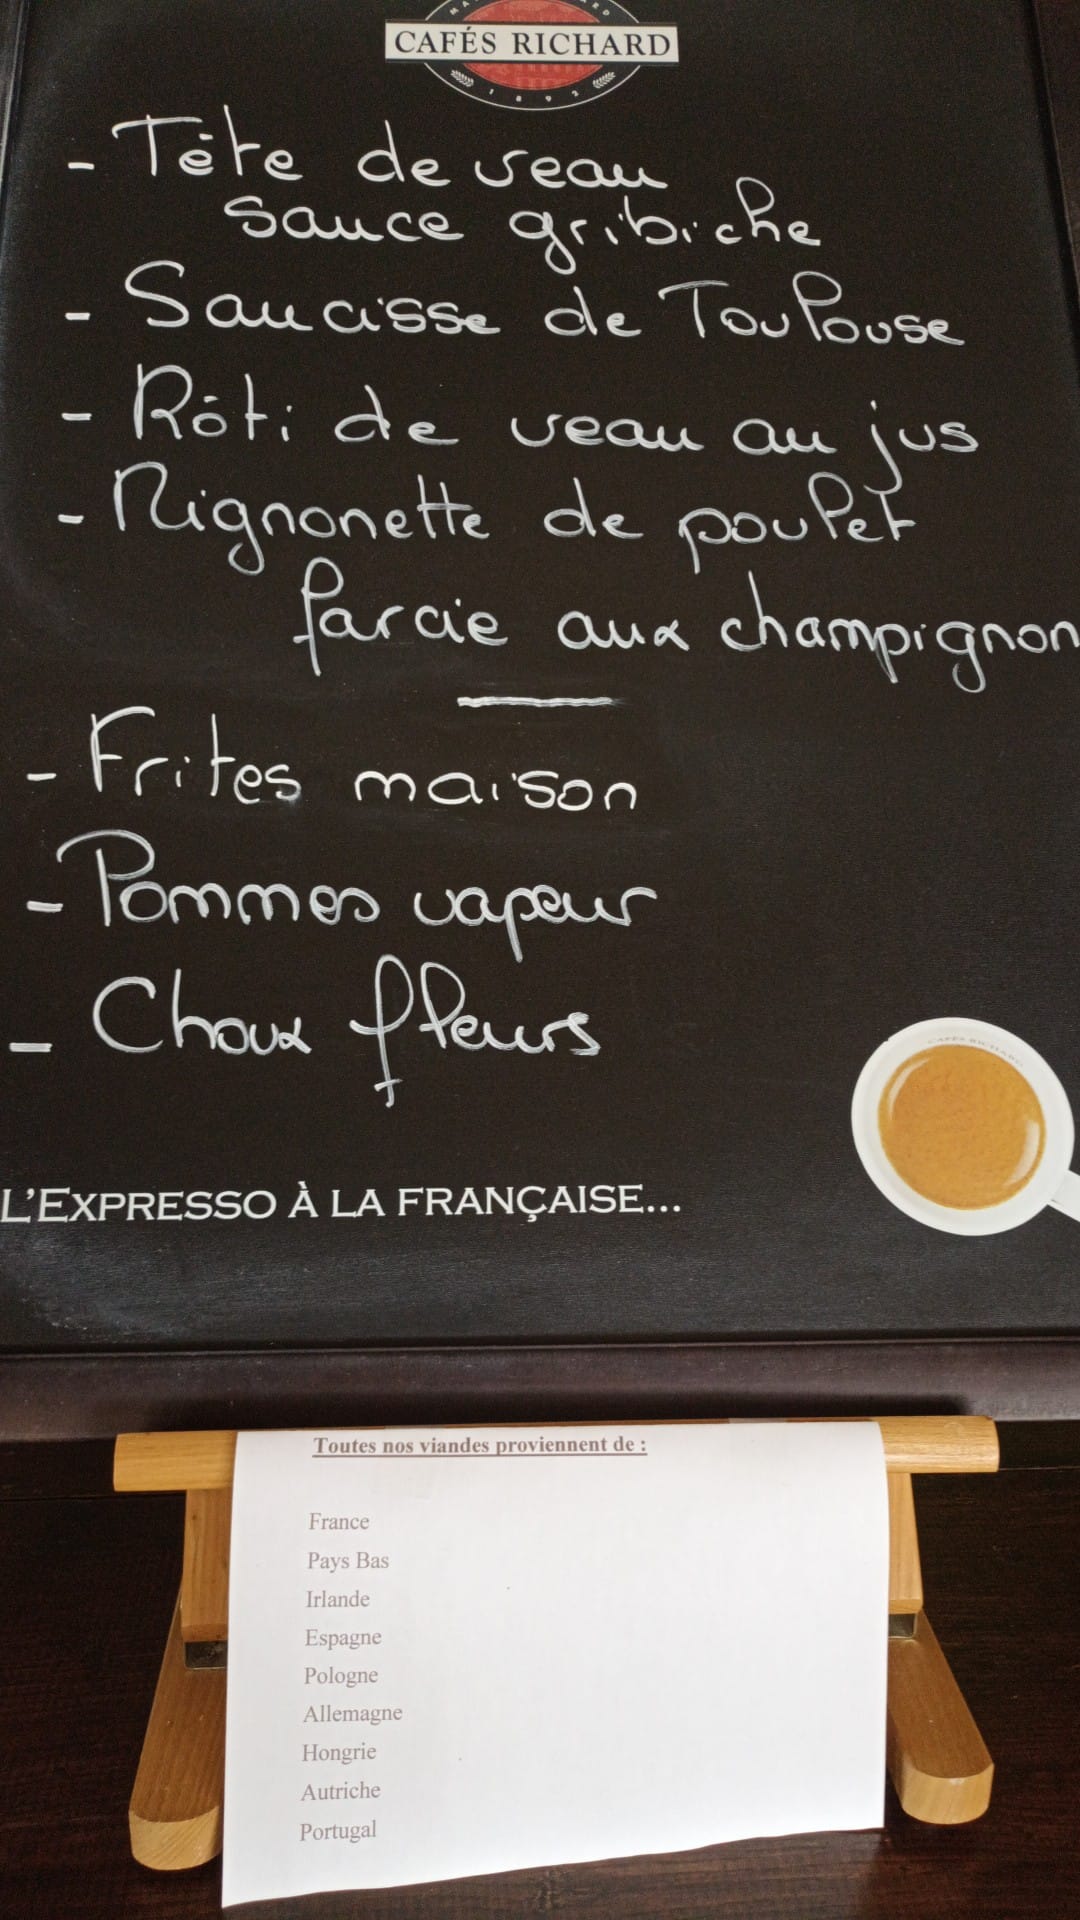 CAFÉS RICHARD
1892
- Tête de veau
sauce gribiche
- Saucisse de Toulouse
- Rôti de veau au jus
- Mignonette de poulet
farcie aux champignon
- Frites maison
- Pommes vapeur
- Choux fleurs
CAFÉS RICHARD
L'EXPRESSO À LA FRANÇAISE...
Toutes nos viandes proviennent de :
France
Pays Bas
Irlande
Espagne
Pologne
Allemagne
Hongrie
Autriche
Portugal